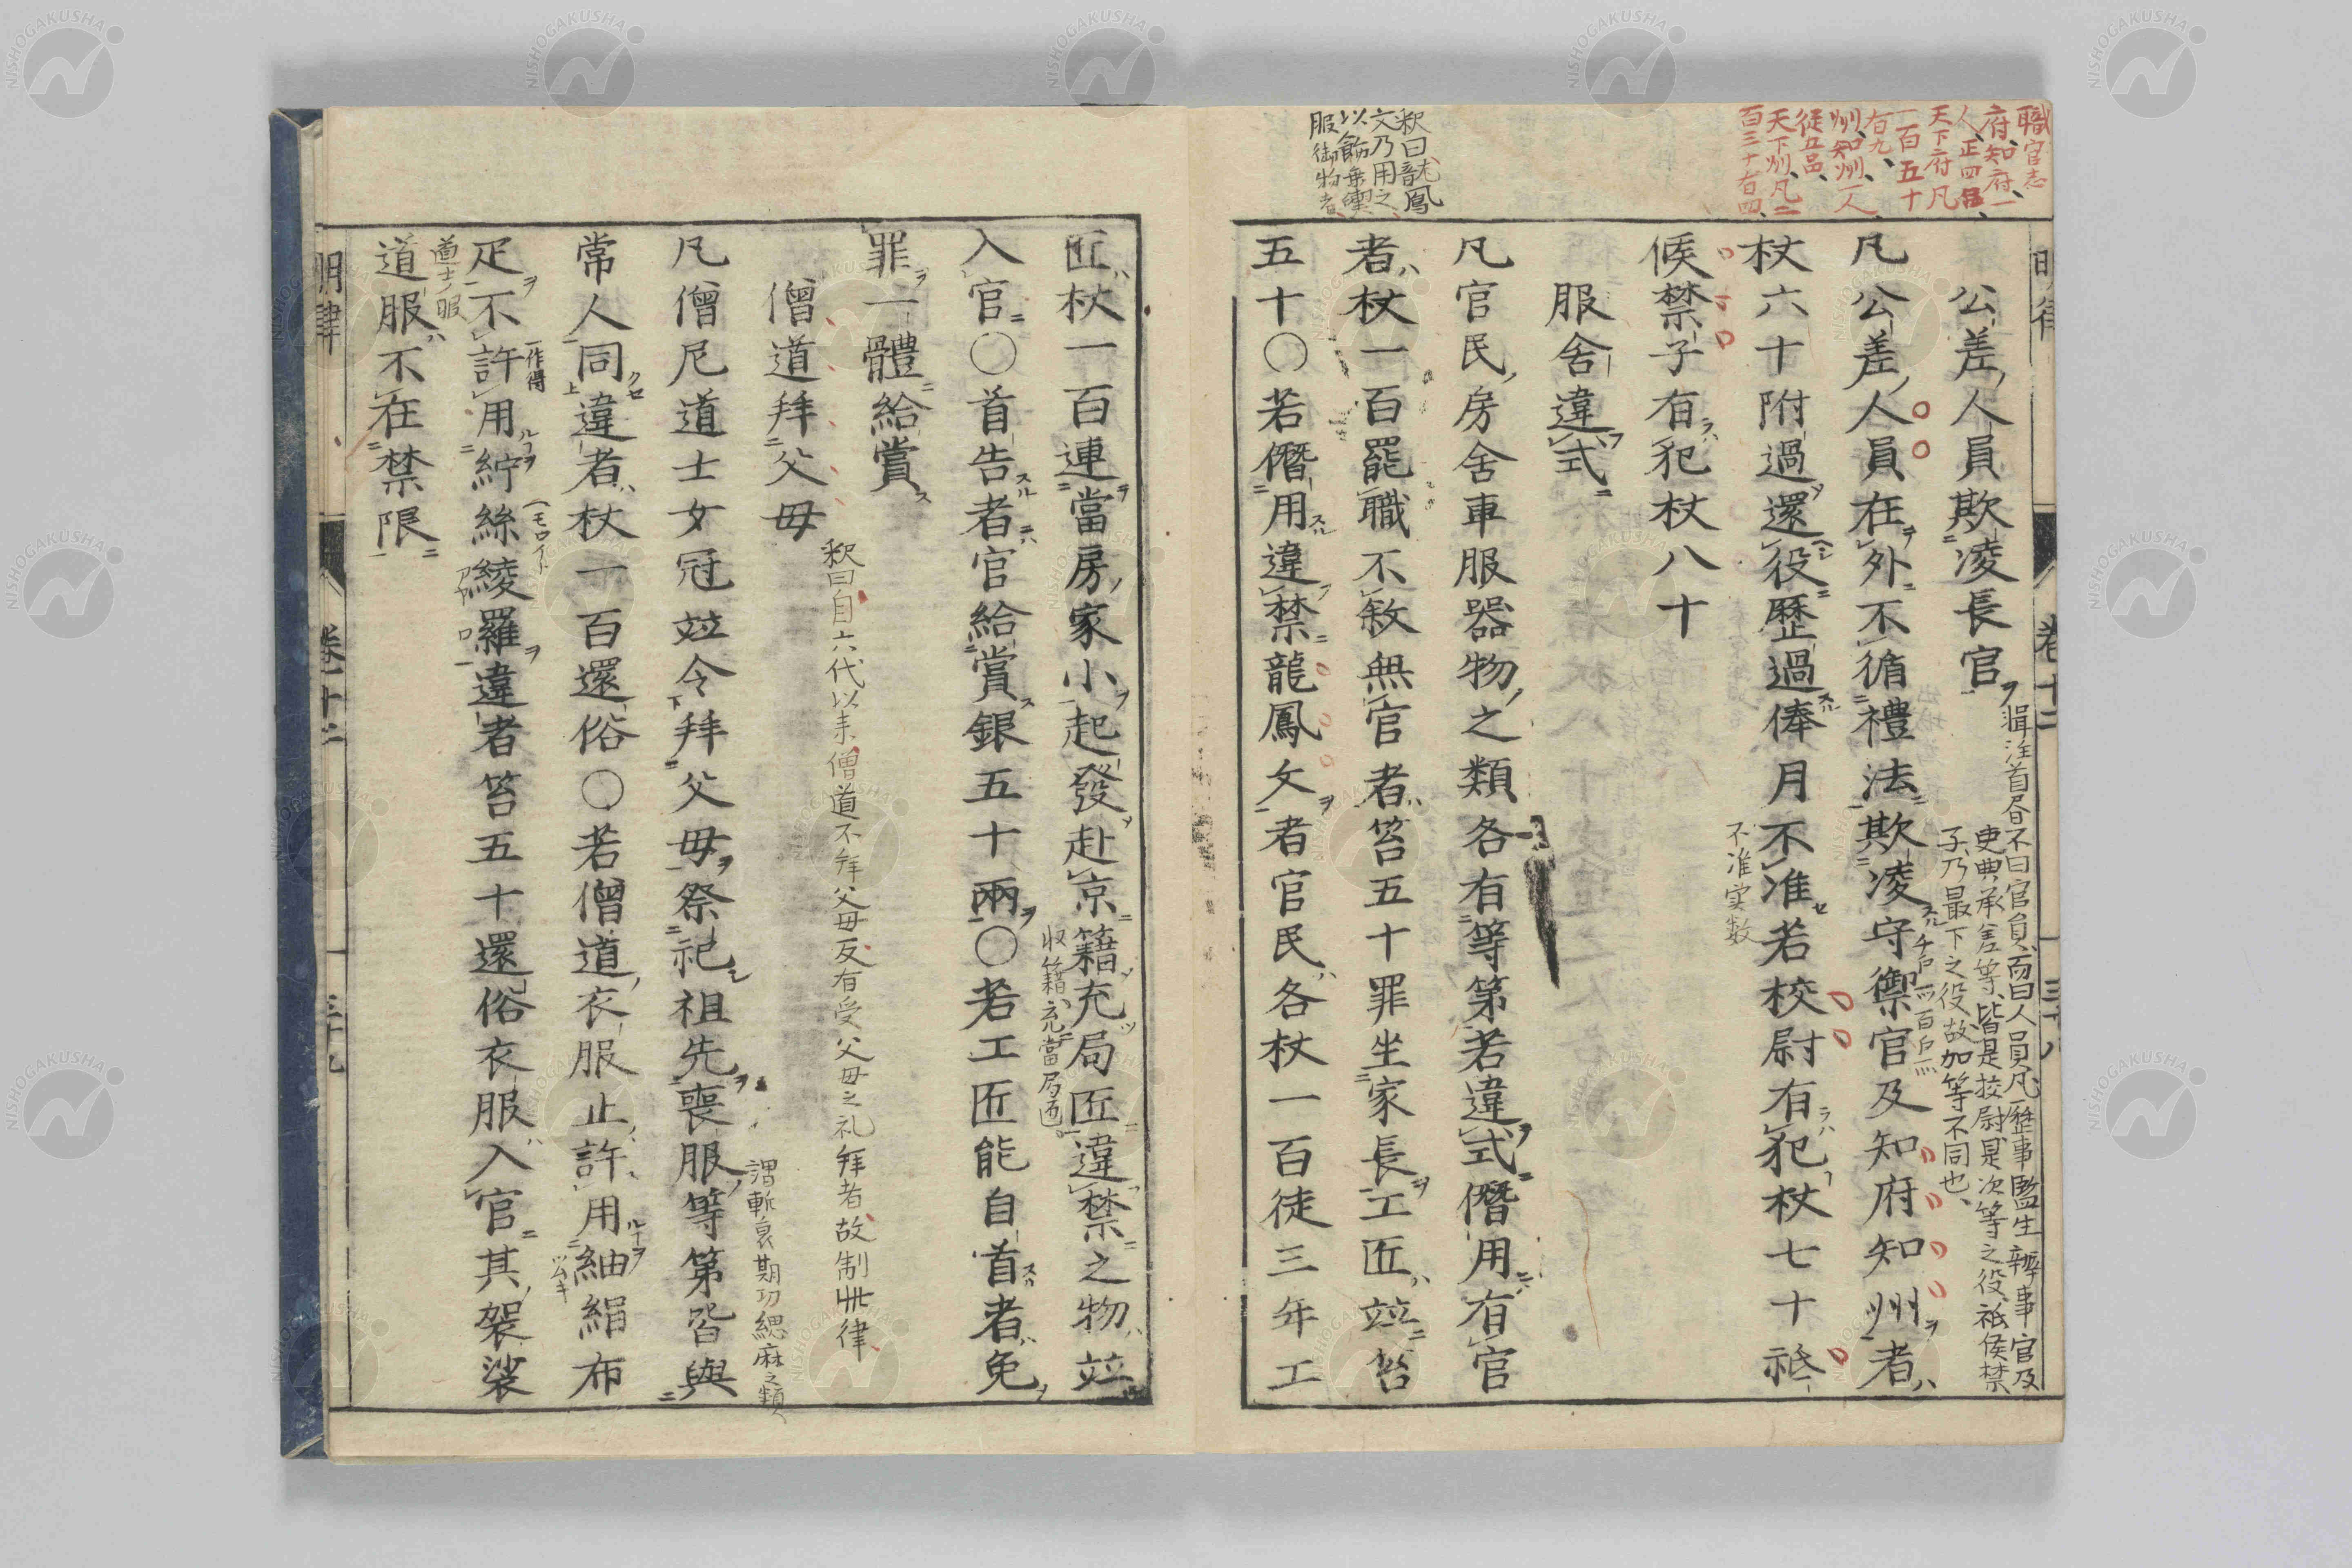 職官志
府、知府一
人、正四品、
天下府凡
一百五十
有九、
州、知州一人
從五品、
天下州、凡二
百三十有四、
釈曰龍鳳
文乃用之
以飾乗輿
服御物者
公差人員欺凌長官
輯注首層不曰官員、而曰人員、凡歴事監生辨事官及
吏典承差等、皆是挍尉是次等之役、祗侯禁
子乃最下之役故加等不同也、
凡公差人員在外不循禮法欺凌守禦官及知府知州者
千戸所百戸所
杖六十附過還役歷過俸月不准若校尉有犯杖七十祗
不准実数
候禁子有犯杖八十
服舍違式
凡官民房舍車服器物之類各有等第若違式僭用有官
者杖一百罷職不敘無官者笞五十罪坐家長工匠竝笞
五十〇若僭用違禁龍鳳文者官民各杖一百徒三年工
匠杖一百連當房家小起發赴京籍充局匠違禁之物竝
収籍充當局匠
入官〇首告者官給賞銀五十兩〇若工匠能自首者免
罪一體給賞
僧道拜父母
釈曰自六代以来僧道不拜父母反有受父母之礼拜者故制此律
謂斬衰期功緦麻之類
凡僧尼道士女冠竝令拜父母祭祀祖先喪服等第皆與
常人同違者杖一百還俗〇若僧道衣服止許用紬絹布
ツムキ
一作得
疋不許用紵絲綾羅違者笞五十還俗衣服入官其袈裟
モロイト
道士ノ服
道服不在禁限
明律
卷十二
三十八
明律
卷十二
三十九
NISHOGAKUSHA